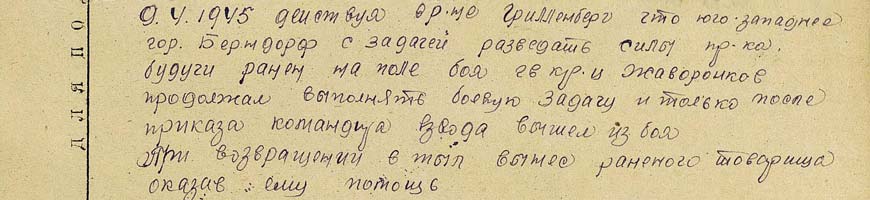 ДЛЯ ПО
9.4.1945 действуя в р-не Грилленберг что юго-западнее
гор. Берндорф с задачей разведать силы пр-ка.
будучи ранен на поле боя гв кр-ц Жаворонков
продолжал выполнять боевую задачу и только после
приказа командира взвода вышел из боя
При возвращении в тыл вынес раненого товарища
оказав ему помощь